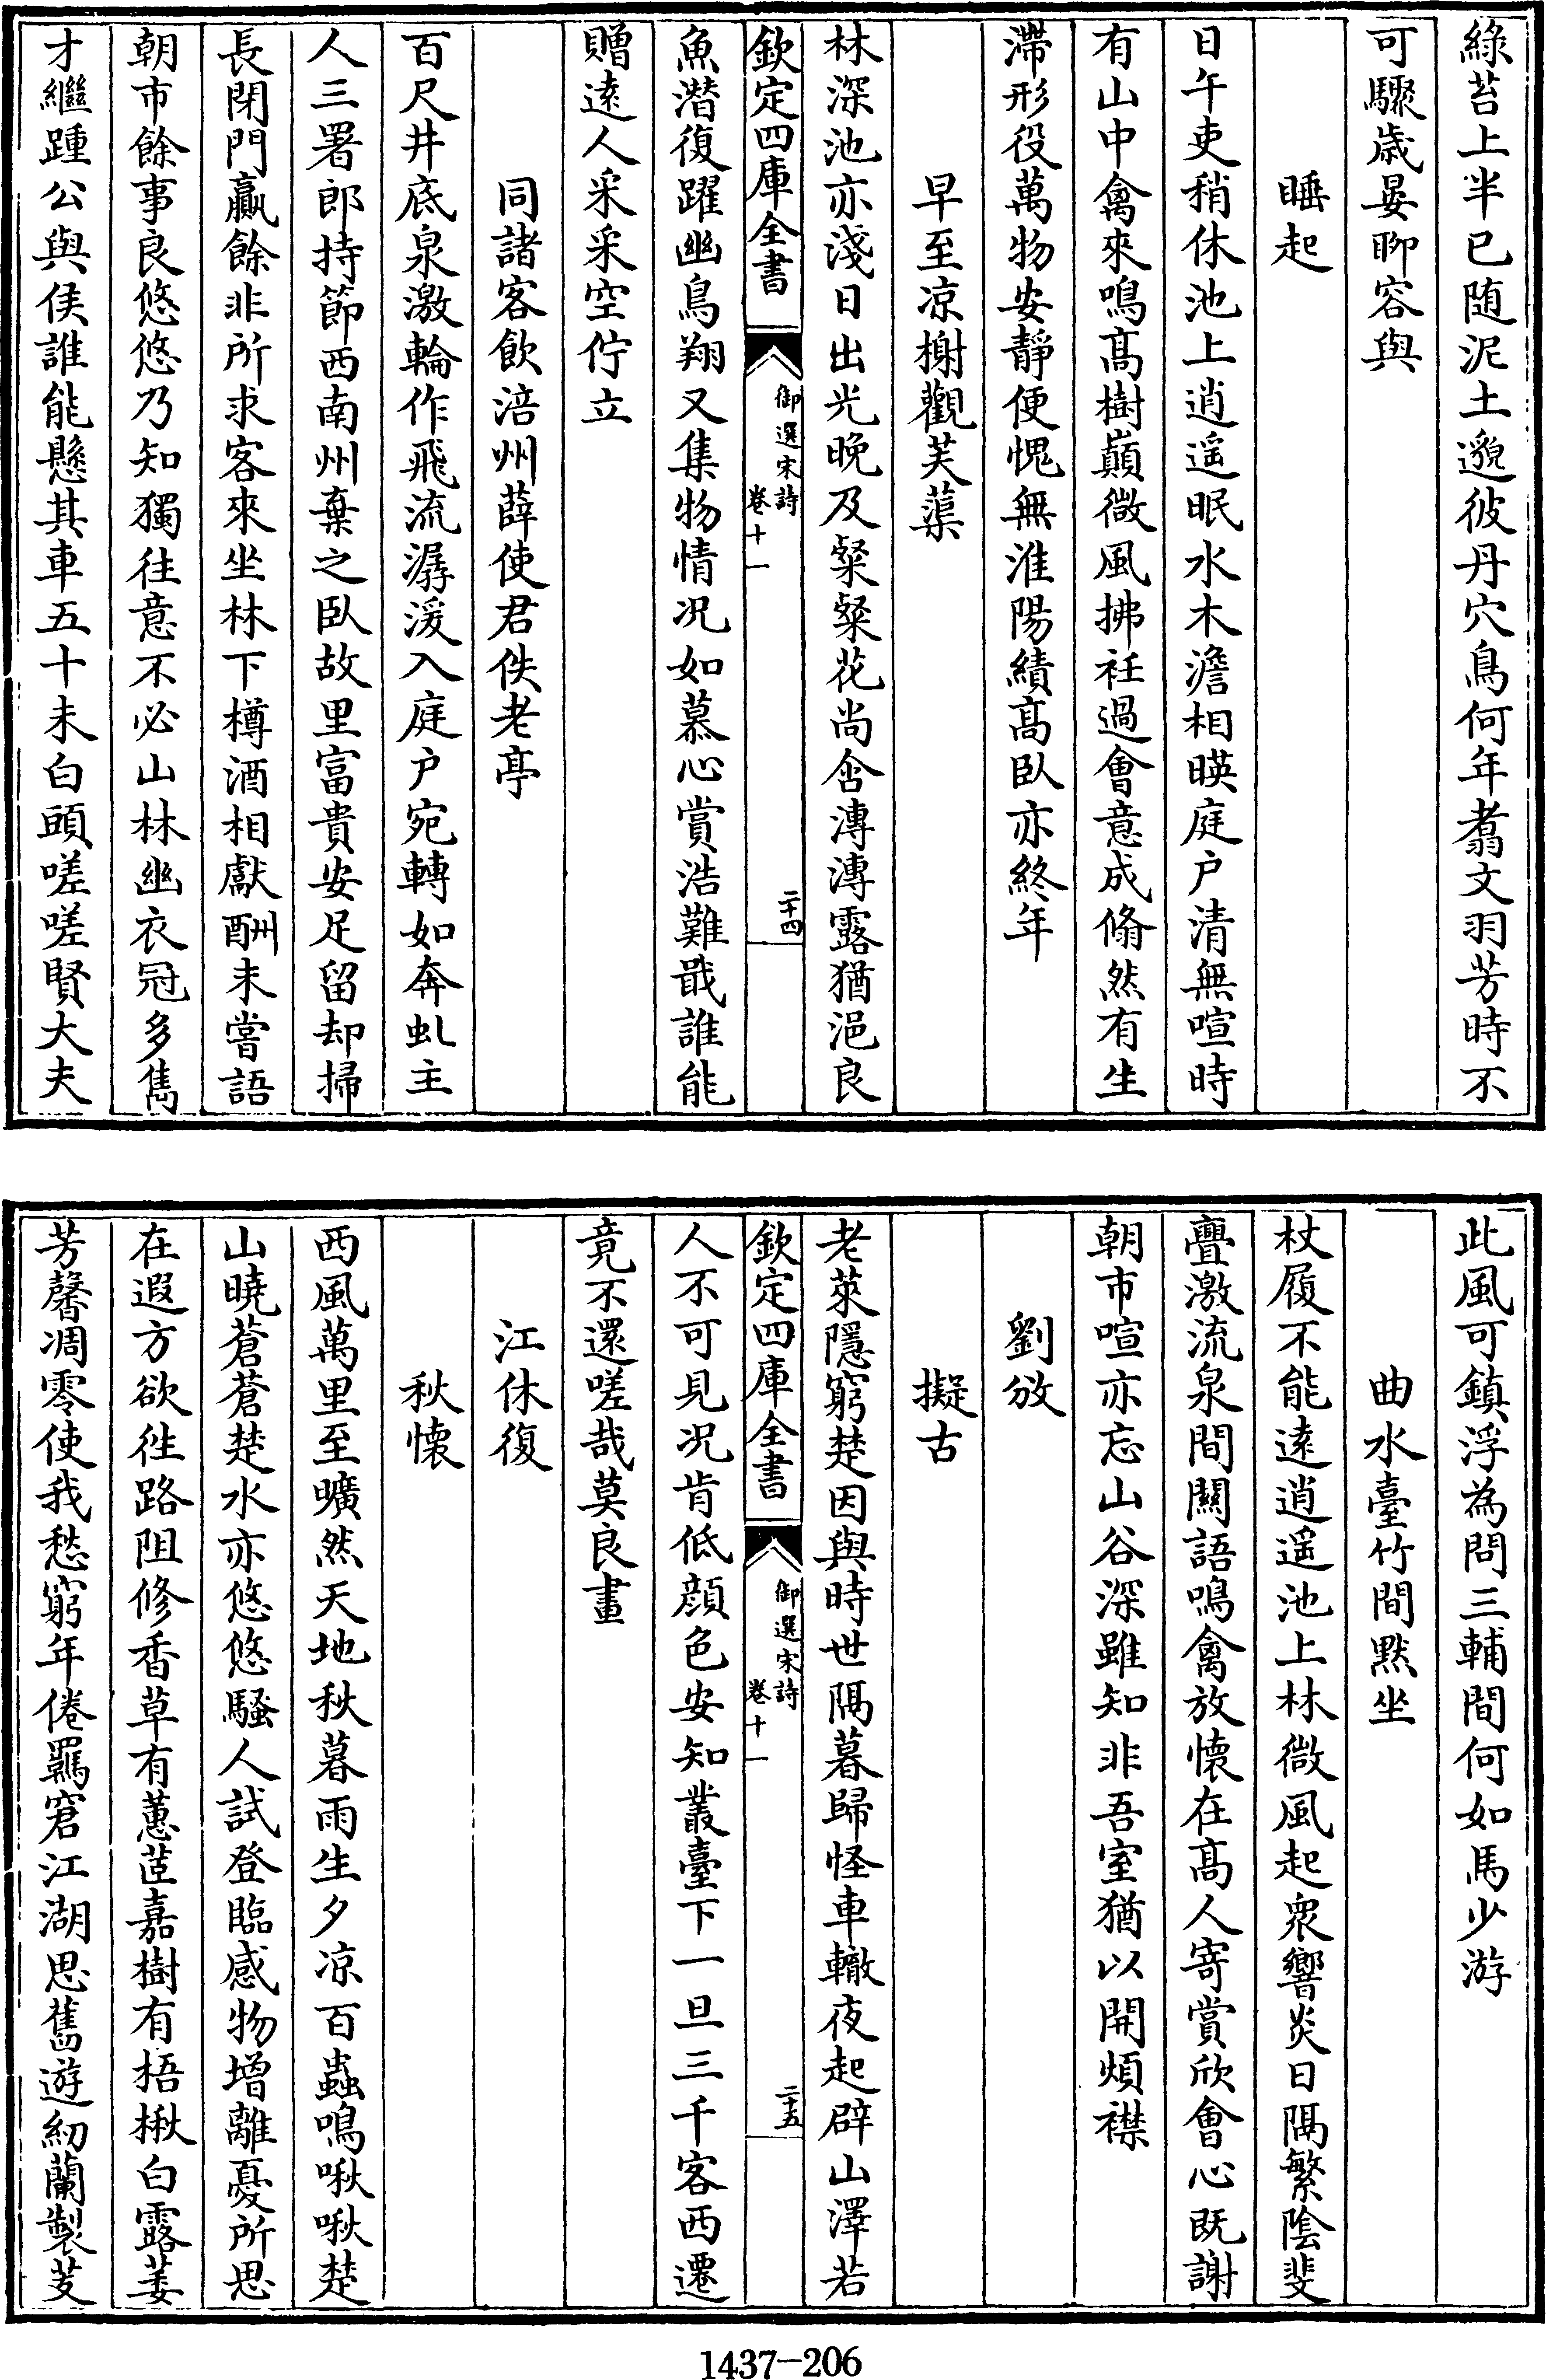 綠苔上半已随泥土邈彼丹穴鳥何年翥文羽芳時不
可驟歲晏聊容與
睡起
日午吏稍休池上逍遥眠水木澹相暎庭户清無喧時
有山中禽來鳴髙樹巔微風拂衽過會意成翛然有生
滯形役萬物安靜便愧無淮陽績髙臥亦終年
早至凉榭觀芙蕖
林深池亦淺日出光晚及粲粲花尚含漙漙露猶浥良
欽定四庫全書
御選宋詩
卷十一
二十四
魚潛復躍幽鳥翔又集物情况如慕心賞浩難戢誰能
贈逺人采采空佇立
同諸客飲涪州薛使君佚老亭
百尺井底泉激輪作飛流潺湲入庭户宛轉如奔虬主
人三署郎持節西南州棄之臥故里富貴安足留却掃
長閉門贏餘非所求客來坐林下樽酒相獻酬未嘗語
朝市餘事良悠悠乃知獨往意不必山林幽衣冠多雋
才繼踵公與侯誰能懸其車五十未白頭嗟嗟賢大夫
此風可鎮浮為問三輔間何如馬少游
曲水臺竹間黙坐
杖履不能逺逍遥池上林微風起衆響炎日隔繁陰斐
亹激流泉間關語鳴禽放懷在髙人寄賞欣會心既謝
朝市喧亦忘山谷深雖知非吾室猶以開煩襟
劉攽
擬古
老萊隱窮楚因與時世隔暮歸怪車轍夜起辟山澤若
欽定四庫全書
御選宋詩
卷十一
二十五
人不可見况肯低顔色安知叢臺下一旦三千客西遷
竟不還嗟哉莫良畫
江休復
秋懷
西風萬里至曠然天地秋暮雨生夕凉百蟲鳴啾啾楚
山曉蒼蒼楚水亦悠悠騷人試登臨感物增離憂所思
在遐方欲徃路阻修香草有蕙茝嘉樹有梧楸白露萎
芳馨凋零使我愁窮年倦羈窘江湖思舊遊紉蘭製芰
1437—206